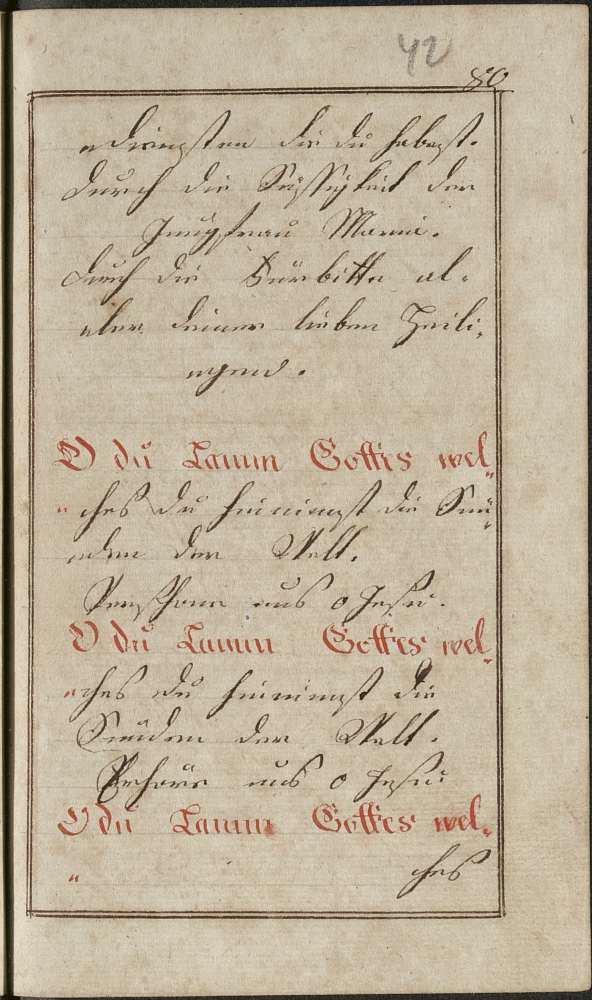 42
80
durch die Süssigkeit der
Jungfrau Maria.
durch die Fürbitte al-
aller deiner lieben Heili-
ngen.
O du Lamm Gottes wel-
"ches du hinnimst die Sün-
nden der Welt.
Verschone uns o Jesu.
O du Lamm Gottes wel-
"ches du hinnimst die
Sünden der Welt.
Erhöre uns o Jesu
O du Lamm Gottes wel-
" ches